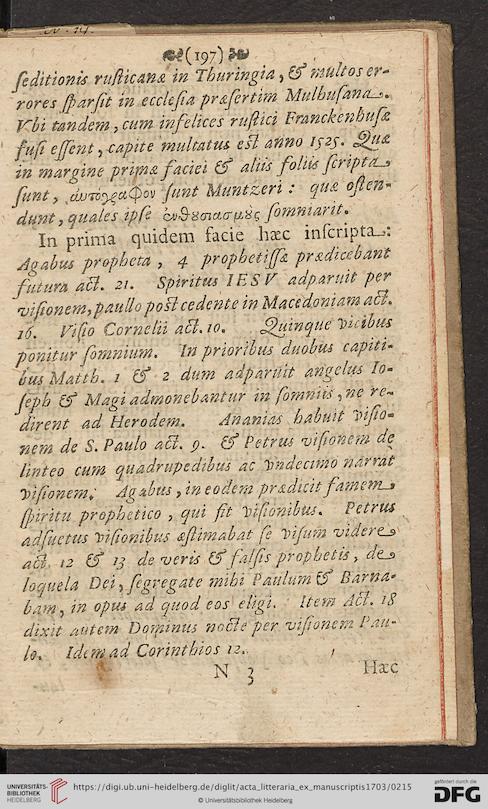 (197)
ſeditionis ruſticanæ in Thuringia, & multos er-
rores ſparſit in eccleſia præſertim Mulhuſana.
Vbi tandem, cum infelices ruſtici Franckenhuſæ
fuſi eſſent, capite multatus eſt anno 1525. Quæ
in margine primæ faciei & aliis foliis ſcripta
ſunt, αυτόγραφον ſunt Muntzeri: quæ oſten-
dunt, quales ipſe ενθυσιασμὺς ſomniarit.
In prima quidem facie hæc inſcripta:
Agabus propheta, 4 prophetiſſæ prædicebant
futura act. 21. Spiritus IESV adparuit per
viſionem, paullo poſt cedente in Macedoniam act.
16. Viſio Cornelii act. 10. Quinque vicibus
ponitur ſomnium. In prioribus duobus capiti-
bus Matth. 1 & 2 dum adparuit angelus Io-
ſeph & Magi admonebantur in ſomniis, ne re-
dirent ad Herodem. Ananias habuit viſio-
nem de S. Paulo act. 9. & Petrus viſionem de
linteo cum quadrupedibus ac vndecimo narrat
viſionem. Agabus, in eodem prædicit famem
ſpiritu prophetico, qui fit viſionibus. Petrus
adſuetus viſionibus æſtimabat ſe viſum videre
act. 12 & 13 de veris & falſis prophetis, de
loquela Dei, ſegregate mihi Paulum & Barna-
bam, in opus ad quod eos eligi. Item Act. 18
dixit autem Dominus nocte per viſionem Pau-
lo. Idem ad Corinthios 12.
N 3 Hæc
UNIVERSITÄTS-
BIBLIOTHEK
HEIDELBERG
https://digi.ub.uni-heidelberg.de/diglit/acta_litteraria_ex_manuscriptis1703/0215
© Universitätsbibliothek Heidelberg
gefördert durch die
DFG